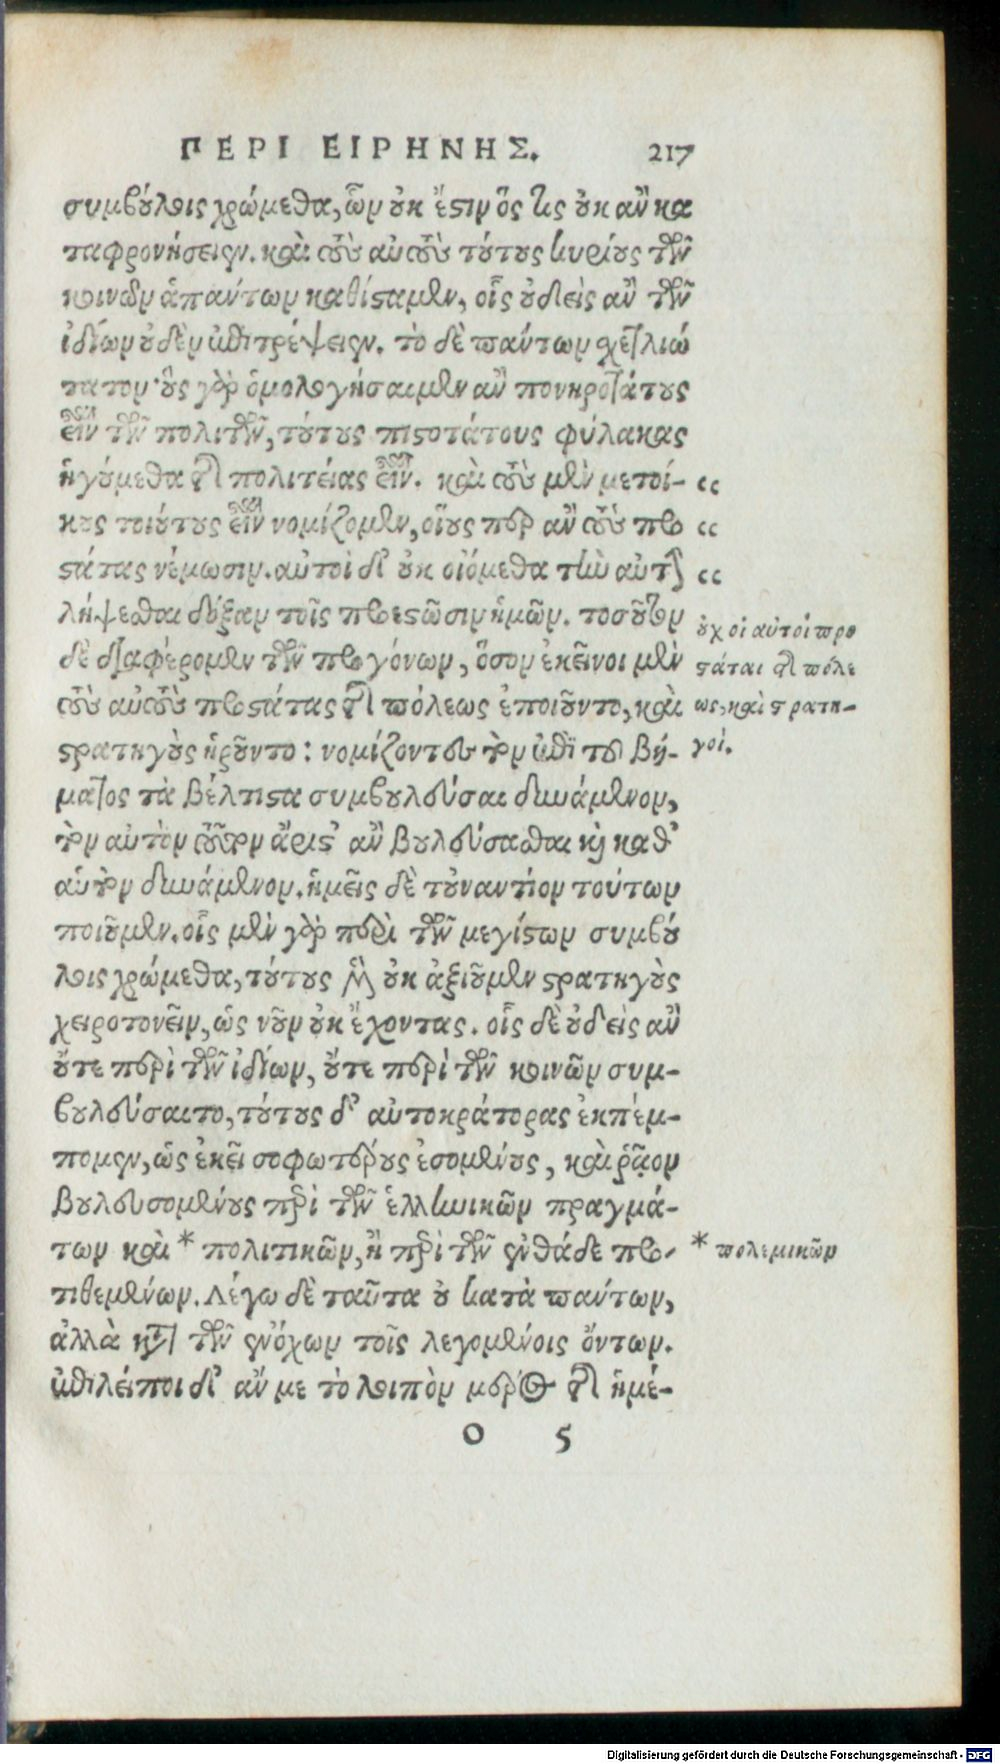 ΠΕΡΙ ΕΙΡΗΝΗΣ. 217
συμβούλοις χρώμεθα, ὧν οὐκ ἔστιν ὅς τις οὐκ ἂν κα
ταφρονήσειεν. καὶ τοὺς αὐτοὺς τούτους κυρίους τῶν
κοινῶν ἁπάντων καθίσταμεν, οἷς οὐδεὶς ἂν τῶν
ἰδίων οὐδὲν ἐπιτρέψειεν. τὸ δὲ πάντων σχετλιώ
τατον· οὓς γὰρ ὁμολογήσαιμεν ἂν πονηροτάτους
εἶναι τῶν πολιτῶν, τούτους πιστοτάτους φύλακας
ἡγούμεθα τῆς πολιτείας εἶναι. καὶ τοὺς μὲν μετοί- “
κους τοιούτους εἶναι νομίζομεν, οἵους περ ἂν τοὺς προ “
στάτας νέμωσιν. αὐτοὶ δ' οὐκ οἰόμεθα τὴν αὐτὴν “
λήψεσθαι δόξαν τοῖς προεστῶσιν ἡμῶν. τοσοῦτον
δὲ διαφέρομεν τῶν προγόνων, ὅσον ἐκεῖνοι μὲν
τοὺς αὐτοὺς προστάτας τῆς πόλεως ἐποιοῦντο, καὶ
στρατηγοὺς ᾑροῦντο: νομίζοντες τὸν ἐπὶ τοῦ βή-
ματος τὰ βέλτιστα συμβουλεῦσαι δυνάμενον,
τὸν αὐτὸν τοῦτον ἄριστ' ἂν βουλεύσασθαι καὶ καθ'
αὑτὸν δυνάμενον. ἡμεῖς δὲ τοὐναντίον τούτων
ποιοῦμεν. οἷς μὲν γὰρ περὶ τῶν μεγίστων συμβού
λοις χρώμεθα, τούτους μὲν οὐκ ἀξιοῦμεν στρατηγοὺς
χειροτονεῖν, ὡς νοῦν οὐκ ἔχοντας. οἷς δὲ οὐδεὶς ἂν
οὔτε περὶ τῶν ἰδίων, οὔτε περὶ τῶν κοινῶν συμ-
βουλεύσαιτο, τούτους δ' αὐτοκράτορας ἐκπέμ-
πομεν, ὡς ἐκεῖ σοφωτέρους ἐσομένους, καὶ ῥᾷον
βουλευσομένους περὶ τῶν ἑλληνικῶν πραγμά-
των καὶ * πολιτικῶν, ἢ περὶ τῶν ἐνθάδε προ-
τιθεμένων. Λέγω δὲ ταῦτα οὐ κατὰ πάντων,
ἀλλὰ κατὰ τῶν ἐνόχων τοῖς λεγομένοις ὄντων.
ἐπιλείποι δ' ἄν με τὸ λοιπὸν μέρος τῆς ἡμέ-
Ο 5
οὐχ οἱ αὐτοὶ προ
στάται τῆς πόλε
ως, καὶ στρατη-
γοί.
* πολεμικῶν
Digitalisierung gefördert durch die Deutsche Forschungsgemeinschaft - DFG